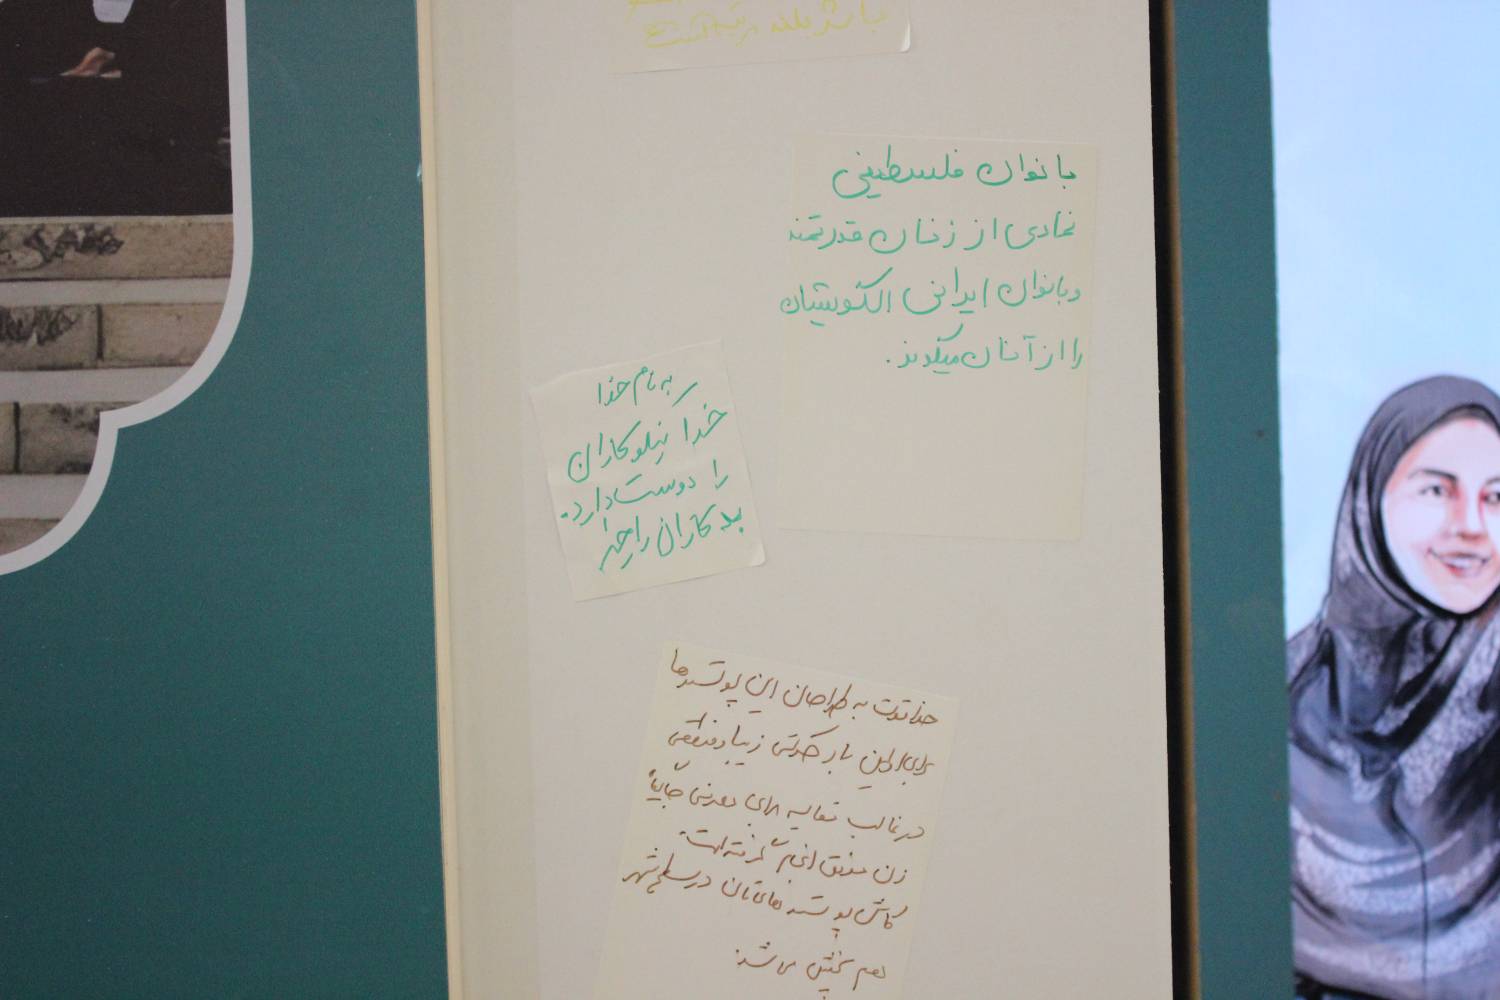 باشد
بانوان فلسطینی
نمادی از زنان قدرتمند
و بانوان ایرانی الگویشان
را از آنان میگیرند.
به نام خدا
خدا نیکوکاران
را دوست دارد.
بدکاران را خیر
خداقوت به طراحان این پوسترها
برای اولین بار حرکتی زیبا و منطقی
در غالب مقایسه برای معرفی جایگاه
زن موفق انجام گرفته است
کاش پوسترهای تان در سطح شهر
هم پخش می شد.